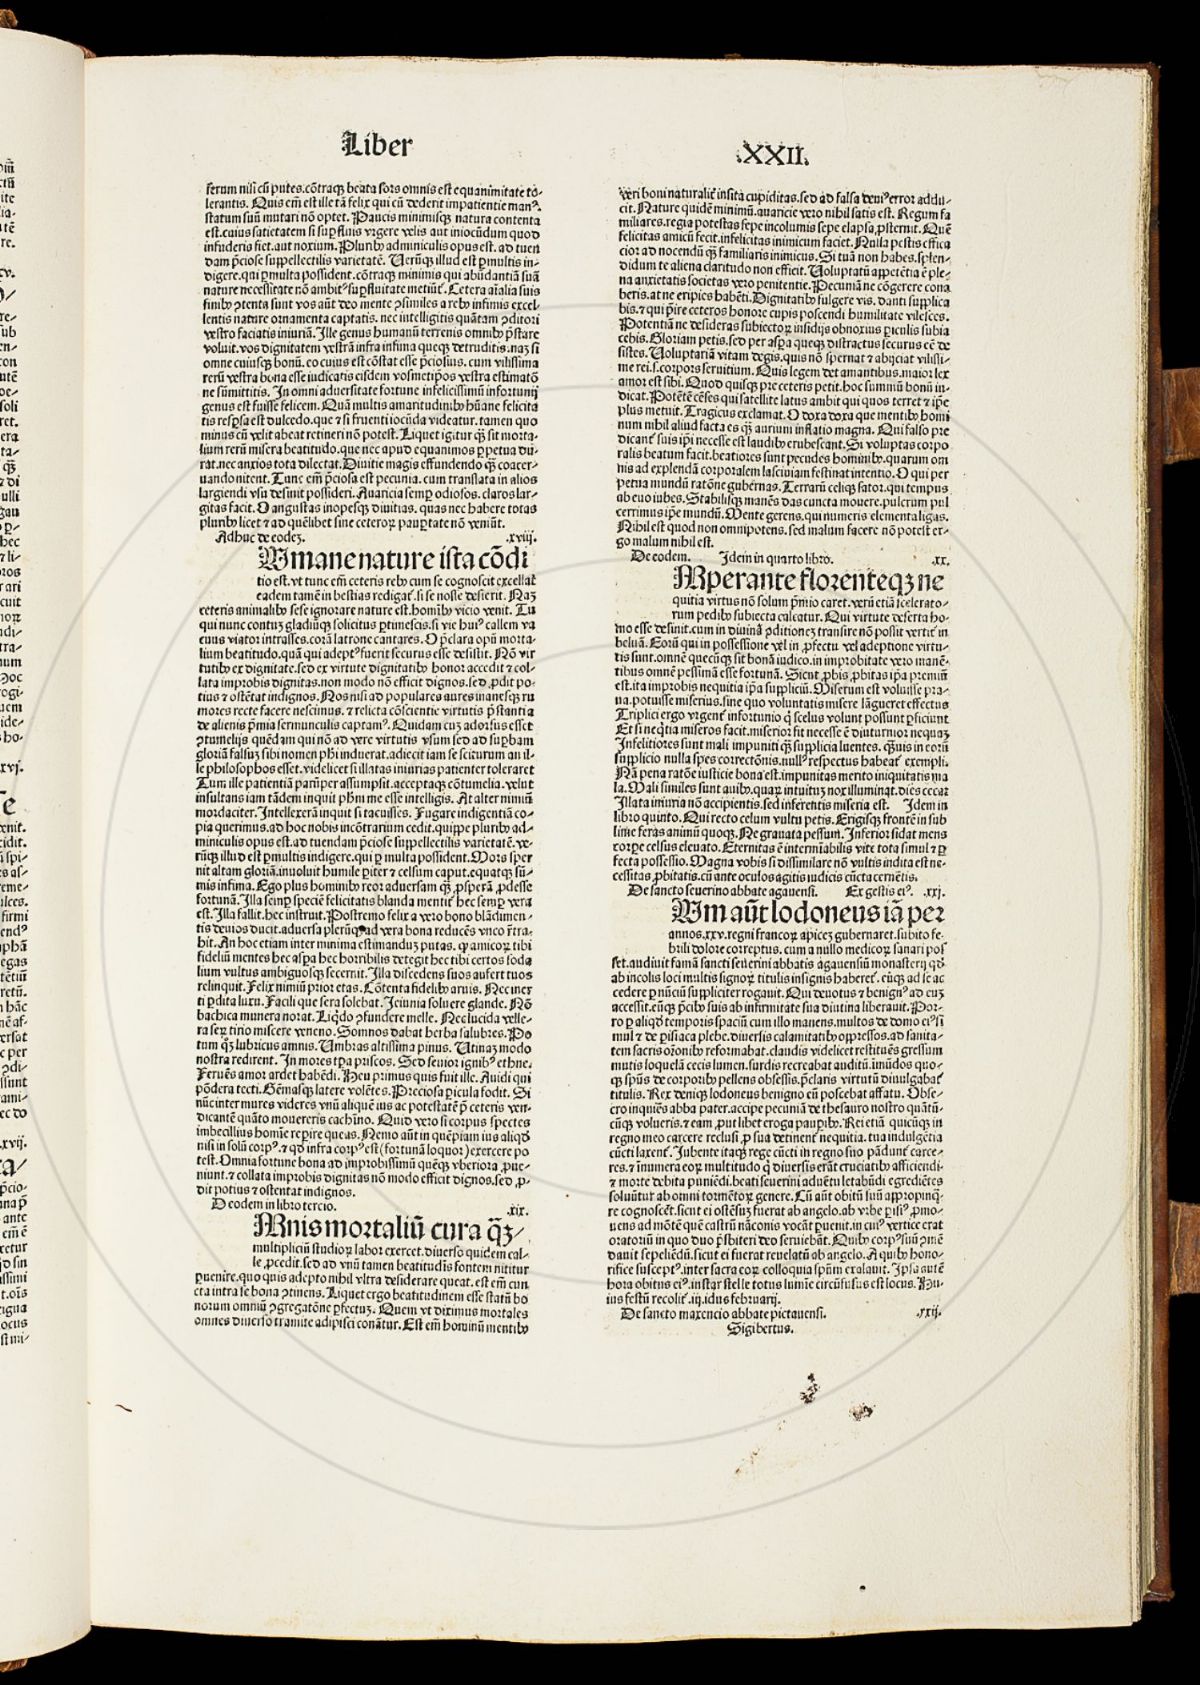 Liber
.XXII.
serum nisi cū putes.cōtraq; beata sors omnis est equanimitate to-
lerantis. Quis em̄ est ille tā felix qui cū dederit impatientie man⁹.
statum suū mutari nō optet. Paucis minimisq; natura contenta
est.cuius satietatem si supfluis vrgere velis aut iniocūdum quod
infuderis fiet.aut noxium. Plurib⁹ adminiculis opus est.ad tuen
dam p̄ciose suppellectilis varietatē. Uerūq; illud est pmultis in-
digere.qui pmulta possident.cōtraq; minimis qui abūdantiā suā
nature necessitate nō ambit⁹ supfluitate metiūt. Cetera aīalia suis
finib⁹ ɔtenta sunt vos aūt deo mente ɔsimiles a reb⁹ infimis excel-
lentis nature ornamenta captatis. nec intelligitis quātam ɔditori
vestro faciatis iniuriā. Ille genus humanū terrenis omnib⁹ p̄stare
voluit. vos dignitatem vestrā infra infima queq; detruditis.naz si
omne cuiusq; bonū. eo cuius est cōstat esse p̄ciosius. cum vilissima
rerū vestra bona esse iudicatis eisdem vosmetip̄os vestra estimatōe
ne sūmittitis. In omni aduersitate fortune infelicissimū infortunij
genus est fuisse felicem. Quā multis amaritudinib⁹ hūane felicita
tis respsa est dulcedo.que ⁊ si fruenti iocūda videatur. tamen quo
minus cū velit abeat retineri nō potest. Liquet igitur q̄ sit morta-
lium rerū misera beatitudo.que nec apud equanimos ppetua dū-
rat.nec anxios tota dilectat. Diuitie magis effundendo q̄ coacer-
uando nitent. Tunc em̄ p̄ciosa est pecunia. cum translata in alios
largiendi vsu desinit possideri. Auaricia semp odiosos. claros lar-
gitas facit. O angustas inopesq; diuitias. quas nec habere totas
plurib⁹ licet ⁊ ad quēlibet sine ceteroꝝ paupertate nō veniūt.
Adhuc de eodez. .xviij.
Umane nature ista cōdi
tio est. vt tunc em̄ ceteris reb⁹ cum se cognoscit excellat
eadem tamē in bestias redigat. si se nosse desierit. Naz
ceteris animalib⁹ sese ignorare nature est. homib⁹ vicio venit. Tu
qui nunc contuz gladiūq; solicitus ptimescis. si vie hui⁹ callem va
cuus viator intrasses. corā latrone cantares. O p̄clara opū morta-
lium beatitudo. quā qui adept⁹ fuerit securus esse desistit. Nō vir
tutib⁹ ex dignitate. sed ex virtute dignitatib⁹ honor accedit ⁊ col-
lata improbis dignitas.non modo nō efficit dignos.sed ꝓdit po-
tius ⁊ ostētat indignos. Nos nisi ad populares aures inanesq; ru
mores recte facere nescimus. ⁊ relicta cōscientie virtutis p̄stantia
de alienis p̄mia sermunculis captam⁹. Quidam cuz adorsus esset
ɔtumelijs quēdam qui nō ad vere virtutis vsum sed ad supbam
gloriā falsuz sibi nomen phi induerat.adiecit iam se sciturum an il-
le philosophos esset. videlicet si illatas iniurias patienter toleraret
Tum ille patientiā parūper assumpsit. acceptaq; cōtumelia. velut
insultans iam tādem inquit phm me esse intelligis. At alter nimiū
mordaciter. Intellexerā inquit si tacuisses. Fugare indigentiā co-
pia querimus.ad hoc nobis incōtrarium cedit. quippe plurib⁹ ad-
miniculis opus est.ad tuendam p̄ciose suppellectilis varietatē. ve-
rūq; illud est pmultis indigere.qui p multa possident. Mors sper
nit altam gloriā.inuoluit humile piter ⁊ celsum caput.equatq; sū-
mis infima. Ego plus hominib⁹ reor aduersam q̄ ꝓsperā ꝓdesse
fortunā. Illa semp specie felicitatis blanda mentit. hec semp vera
est. Illa fallit.hec instruit. Postremo felix a vero bono blādimen-
tis deuios ducit.aduersa plerūq; ad vera bona reducēs vnco r̄tra-
hit. An hoc etiam inter minima estimanduz putas. q̄ amicoꝝ tibi
fidelium mentes hec aspa hec horribilis detegit hec tibi certos soda
lium vultus ambiguosq; secernit. Illa discedens suos aufert tuos
relinquit. Felix nimiū prior etas. Cōtenta fidelib⁹ aruis. Nec iner
ti pdita luxu. Facili que sera solebat. Ieiunia soluere glande. Nō
bachica munera norat. Liqdo ɔfundere melle. Nec lucida velle-
ra serꝝ tirio miscere veneno. Somnos dabat herba salubres. Po
tum q̄ lubricus amnis. Umbras altissima pinus. Utinaz modo
nostra redirent. In mores tpa priscos. Sed seuior ignib⁹ ethne.
Feruēs amor ardet habēdi. Heu primus quis fuit ille. Auidi qui
pōdera tecti. Gēmasq; latere volētes. Preciosa picula fodit. Si
nūc inter mures videres vnū aliquē ius ac potestatē p̄ ceteris ven-
dicantē quāto mouereris cachino. Quid vero si corpus spectes
imbecillius homine repire queas. Nemo aūt in quēpiam ius aliqd
nisi in solū corp⁹. ⁊ qd infra corp⁹ est (fortunā loquor) exercere po
test. Omnia fortune bona ad improbissimū quēq; vberiora ꝓue-
niunt. ⁊ collata improbis dignitas nō modo efficit dignos.sed ꝓ-
dit potius ⁊ ostentat indignos.
De eodem in libro tercio. .xix.
Mnis mortaliū cura q̄z/
multipliciū studioꝝ labor exercet. diuerso quidem cal-
le ꝓcedit. sed ad vnū tamen beatitudīs fontem nititur
puenire.quo quis adepto nihil vltra desiderare queat. est em̄ cun
cta intra se bona ɔtinens. Liquet ergo beatitudinem esse statū bo
norum omniū ɔgregatōne pfectuz. Quem vt diximus mortales
omnes diuerso tramite adipisci conātur. Est em̄ hominū mentib⁹
veri boni naturalit̄ insita cupiditas.sed ad falsa deui⁹ error addu-
cit. Nature quidē minimū.auaricie vero nihil satis est. Regum fa
miliares.regia potestas sepe incolumis sepe elapsa ꝓsternit. Quē
felicitas amicū fecit. infelicitas inimicum faciet. Nulla pestis effica
cior ad nocendū q̄ familiaris inimicus. Si tuā non habes. splen-
didum te aliena claritudo non efficit. Uoluptatū appetentia ē ple-
na anxietatis societas vero penitentie. Pecuniā ne cōgerere cona
beris.at ne eripies habēti. Dignitatib⁹ fulgere vis. danti supplica
bis.⁊ qui pire ceteros honore cupis poscendi humilitate vilesces.
Potentiā ne desideras subiectoꝝ insidijs obnoxius piculis subia
cebis. Gloriam petis.sed per aspa queq; distractus securus eē de
sistes. Uoluptariā vitam degis.quis nō spernat ⁊ abijciat vilissi-
me rei.s.corpors seruitium. Quis legem det amantibus.maior lex
amor est sibi. Quod quisq; pre ceteris petit. hoc summū bonū in-
dicat. Potētē cēses qui satellite latus ambit qui quos terret ⁊ ip̄e
plus metuit. Tragicus exclamat. O doxa doxa que mentib⁹ homi
num nihil aliud facta es q̄ aurium inflatio magna. Qui falso pre
dicant̄ suis ip̄i necesse est laudib⁹ erubescant. Si voluptas corpo
ralis beatum facit. beatiores sunt pecudes hominib⁹.quarum om
nis ad explendā corporalem lasciuiam festinat intentio. O qui per
petua mundū ratōne gubernas. Terrarū celiq; sator. qui tempus
ab euo iubes. Stabilisq; manēs das cuncta mouere. pulcrum pul
cerrimus ip̄e mundū. Mente gerens. qui numeris elementa ligas.
Nihil est quod non omnipotens. sed malum facere nō potest er-
go malum nihil est.
De eodem. Idem in quarto libro. .xx.
Mperante florenteqz ne
quitia virtus nō solum p̄mio caret.verū etiā scelerato-
rum pedib⁹ subiecta calcatur. Qui virtute deserta ho-
mo esse desinit.cum in diuinā ɔditionez transire nō possit vertit in
beluā. Eorū qui in possessione vel in ꝓfectu vel adeptione virtu-
tis sunt.omnē quecūq; sit bonā iudico.in improbitate vero manē-
tibus omnē pessimā esse fortunā. Sicut ꝓbis ꝓbitas ipa premiū
est.ita improbis nequitia ipa suppliciū. Miserum est voluisse pra-
ua.potuisse miserius.sine quo voluntatis misere lāgueret effectus
Triplici ergo vrgent̄ infortunio q̄ scelus volunt possunt pficiunt
Et si neq̄tia miseros facit.miserior sit necesse ē diuturnior nequaz
Infelitiores sunt mali impuniti q̄ supplicia luentes. q̄uis in eorū
supplicio nulla spes correctōnis.null⁹ respectus habeat̄ exempli.
Nā pena ratōe iusticie bona est.impunitas merito iniquitatis ma
la. Mali similes sunt auib⁹.quaꝝ intuituz nox illuminat.dies cecat
Illata iniuria nō accipientis.sed inferentis miseria est. Idem in
libro quinto. Qui recto celum vultu petis. Erigisq; frontē in sub
lime feras animū quoq;. Ne grauata pessum. Inferior sidat mens
corpe celsius eleuato. Eternitas ē interminabilis vite tota simul ⁊ p
fecta possessio. Magna vobis si dissimilare nō vultis indita est ne-
cessitas ꝓbitatis.cū ante oculos agitis iudicis cūcta cernētis.
De sancto seuerino abbate agauensi. Ex gestis ei⁹. .xxj.
Um aūt lodoneus iā per
annos.xxv.regni francoꝝ apicez gubernaret.subito fe-
brili dolore correptus. cum a nullo medicoꝝ sanari pos
set.audiuit famā sancti seuerini abbatis agauensiū monasterij qd
ab incolis loci multis signoꝝ titulis insignis haberet̄. eūq; ad se ac
cedere p nūciū suppliciter rogauit. Qui deuotus ⁊ benign⁹ ad euz
accessit.eūq; p̄cib⁹ suis ab infirmitate sua diutina liberauit. Por-
ro p aliqd temporis spaciū cum illo manens.multos de domo ei⁹ si
mul ⁊ de pisiaca plebe.diuersis calamitatib⁹ opp̄ressos.ad sanita-
tem sacris orōnib⁹ reformabat.claudis videlicet restituēs gressum
mutis loquelā cecis lumen.surdis recreabat auditū.imūdos quo-
q; spūs de corporib⁹ pellens obsessis.p̄claris virtutū diuulgabat̄
titulis. Rex deniq; lodoneus benigno eū poscebat affatu. Obse-
cro inquiēs abba pater.accipe pecuniā de thesauro nostro quātū-
cūq; volueris.⁊ eam ꝓut libet eroga paupib⁹. Rei etiā quicūq; in
regno meo carcere reclusi ꝓ sua detinent̄ nequitia.tua indulgētia
cūcti laxent̄. Iubente itaq; rege cūcti in regno suo pādunt̄ carce-
res.⁊ īnumera eoꝝ multitudo q̄ diuersis erāt cruciatib⁹ afficiendi
⁊ morte debita puniēdi.beati seuerini aduētu letabūdi egrediētes
soluūtur ab omni tormētoꝝ genere. Cū aūt obitū suū appropinq̄-
re cognoscēt.sicut ei ostēsuz fuerat ab angelo.ab vrbe pisi⁹ ꝓmo-
uens ad mōtē quē castrū nāconis vocāt puenit.in cui⁹ vertice erat
oratoriū in quo duo p̄sbiteri deo seruiebāt. Quib⁹ corp⁹ suū ɔmē
dauit sepeliēdū.sicut ei fuerat reuelatū ab angelo. A quib⁹ hono-
rifice suscept⁹.inter sacra eoꝝ colloquia spūm exalauit. Ipsa autē
hora obitus ei⁹.instar stelle totus lumīe circūfusus est locus. Hu-
ius festū recolit̄.iij.idus februarij.
De sancto maxencio abbate pictauensi. .xxij.
Sigibertus.